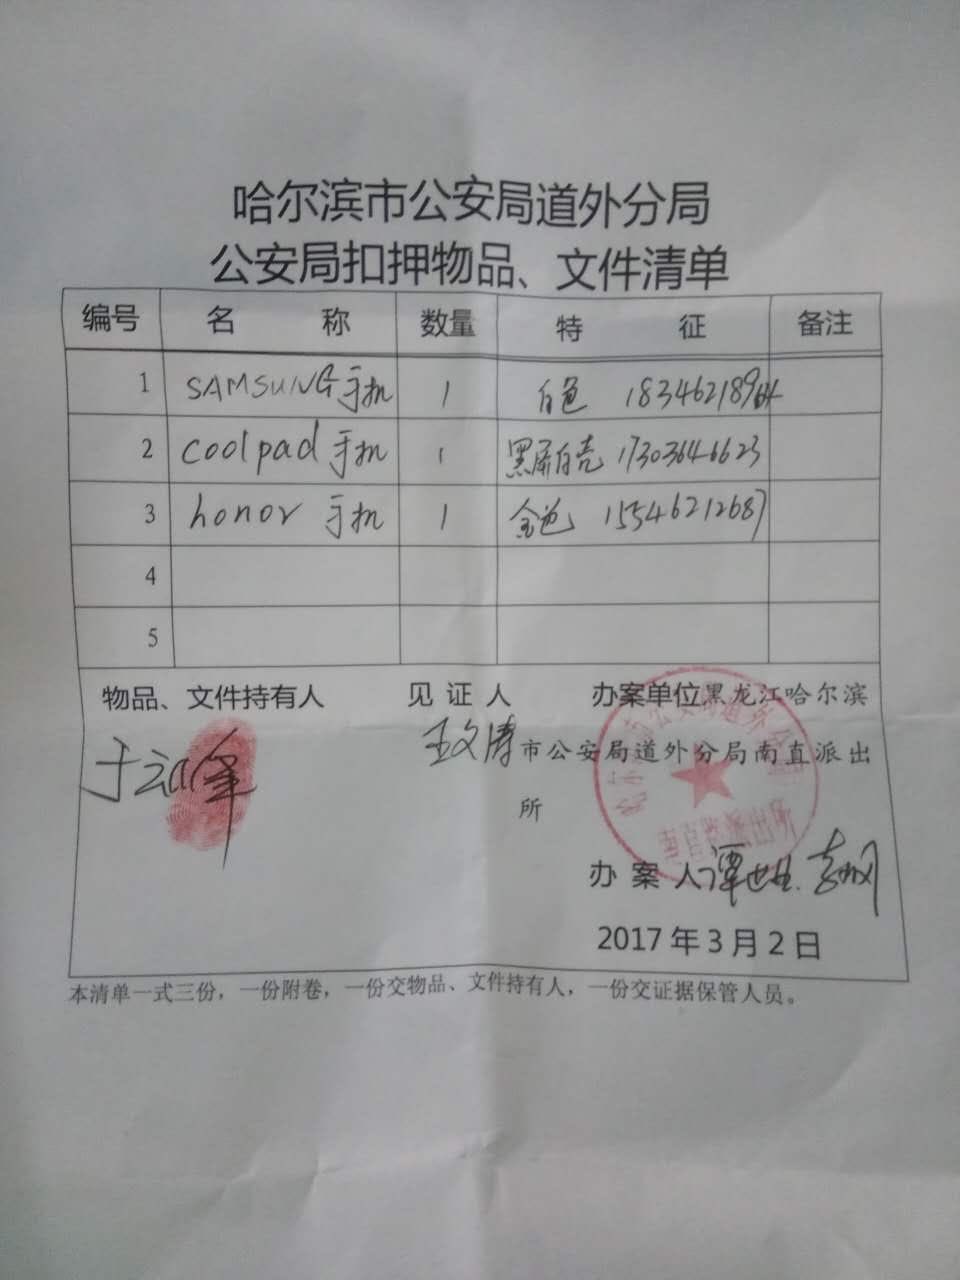 哈尔滨市公安局道外分局
公安局扣押物品、文件清单
编号 名称 数量 特征 备注
1 SAMSUNG手机 1 白色 18346218964
2 coolpad手机 1 黑屏白壳 17303646623
3 honor 手机 1 金色 15546212687
4
5
物品、文件持有人 见证人 办案单位黑龙江哈尔滨
市公安局道外分局南直派出
所
于云峰
王文涛
办案人
2017年3月2日
本清单一式三份，一份附卷，一份交物品、文件持有人，一份交证据保管人员。